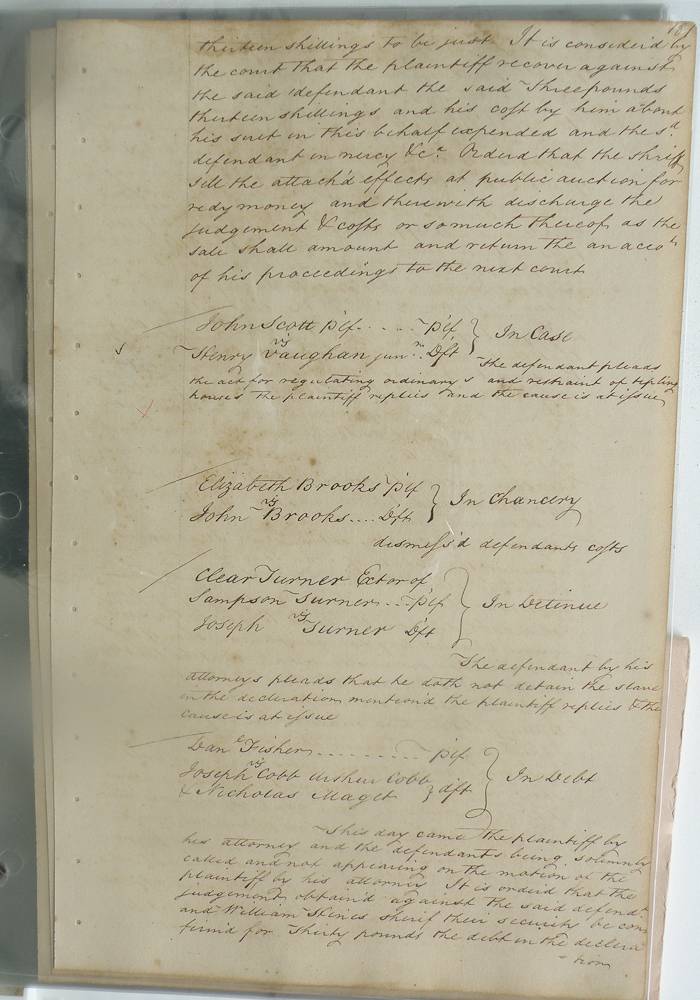 thirteen shillings to be just It is consider'd by
the court that the plaintiff recover against
the said defendant the said Three pounds
thirteen shillings and his cost by him about
his suit in this behalf expended and the sd
defendant in mercy &ca Orderd that the shriff
sell the attach'd effects at public auction for
redy money and therewith discharge the
judgement & costs or so much thereof as the
sale shall amount and return the an accots
of his proceedings to the next court
John Scott plf ...... plf } In Case
vs
Henry Vaughan junr Dft
The defendant pleads
the act for regutating ordinary s and restraint of tipling
houses the plaintiff replies and the cause is at issue
Elizabeth Brooks plf } In Chancery
vs
John Brooks .... Dft
dismess'd defendants costs
Clear Turner Extor of
Sampson Turner ... plf } In Detinue
vs
Joseph Turner Dft
The defendant by his
attorneys pleads that he doth not detain the slave
in the decleration mention'd the plaintiff replies & the
cause is at issue
Danl Fisher .......... plf
vs
Joseph Cobb Arthur Cobb } In Debt
& Nicholas Maget } dft
This day came the plaintiff by
his attorney and the defendants being solemnly
called and not appearing on the motion of the
plaintiff by his attorney It is orderd that the
judgement obtain'd against the said defendts
and William Skines sherif their security be con
firm'd for Thirty pounds the debt in the declera
tion